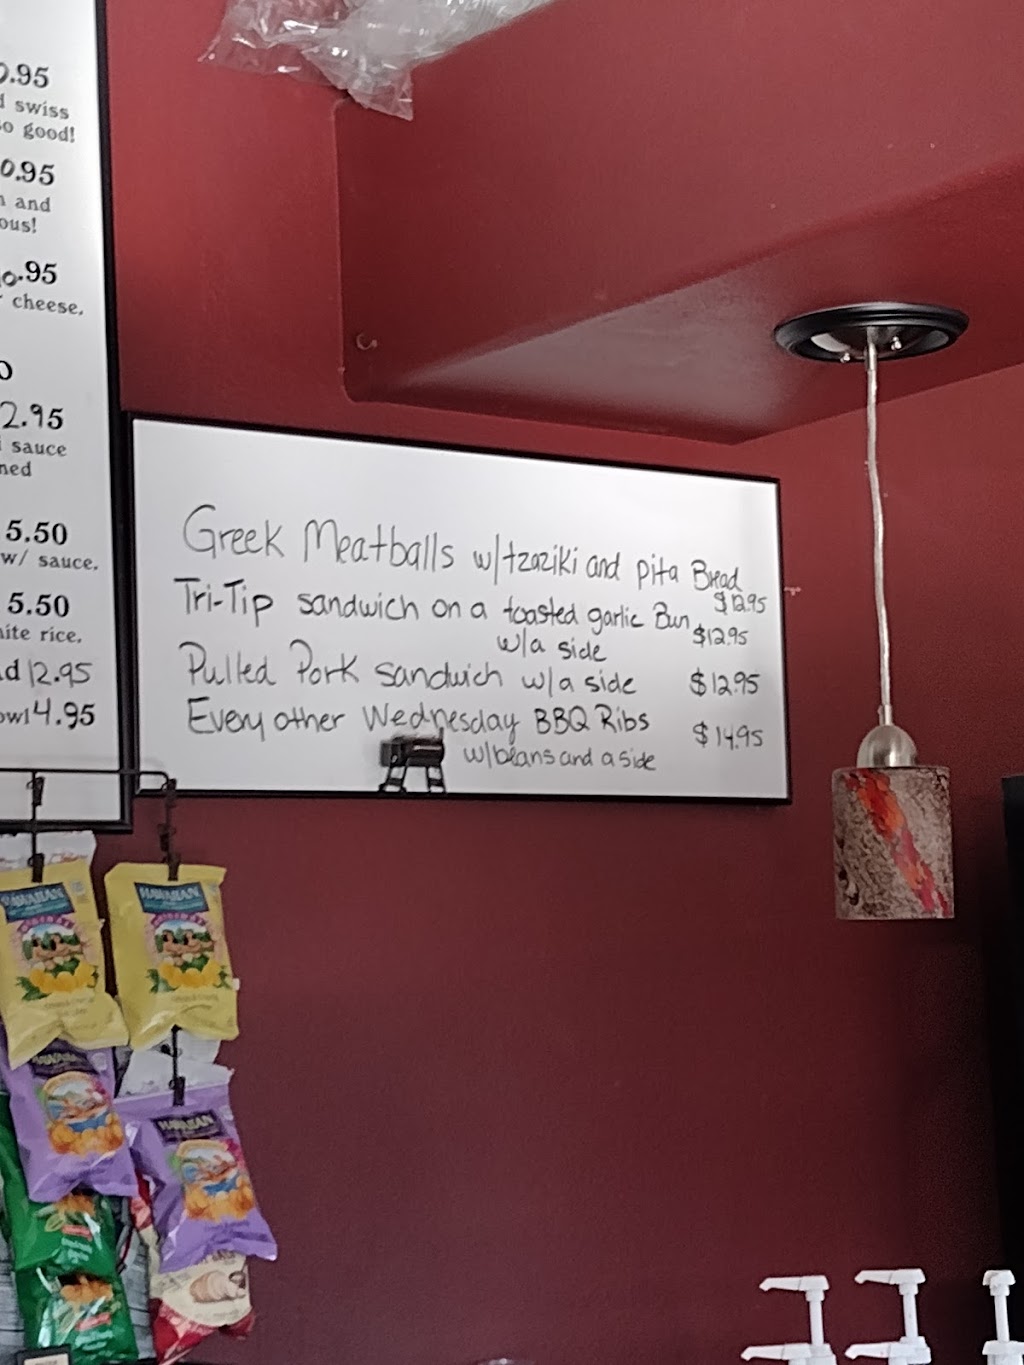 0.95
swiss
so good!
0.95
and
ous!
10.95
cheese,
0
2.95
sauce
ned
5.50
w/ sauce,
5.50
ite rice,
d 12.95
owl 4.95
Greek Meatballs w/tzaziki and pita Bread
$12.95
Tri-Tip sandwich on a toasted garlic Bun
w/a side $12.95
Pulled Pork sandwich w/a side $12.95
Every other Wednesday BBQ Ribs
w/beans and a side $14.95
HAWAIIAN
HAWAIIAN
HAWAIIAN
HAWAIIAN